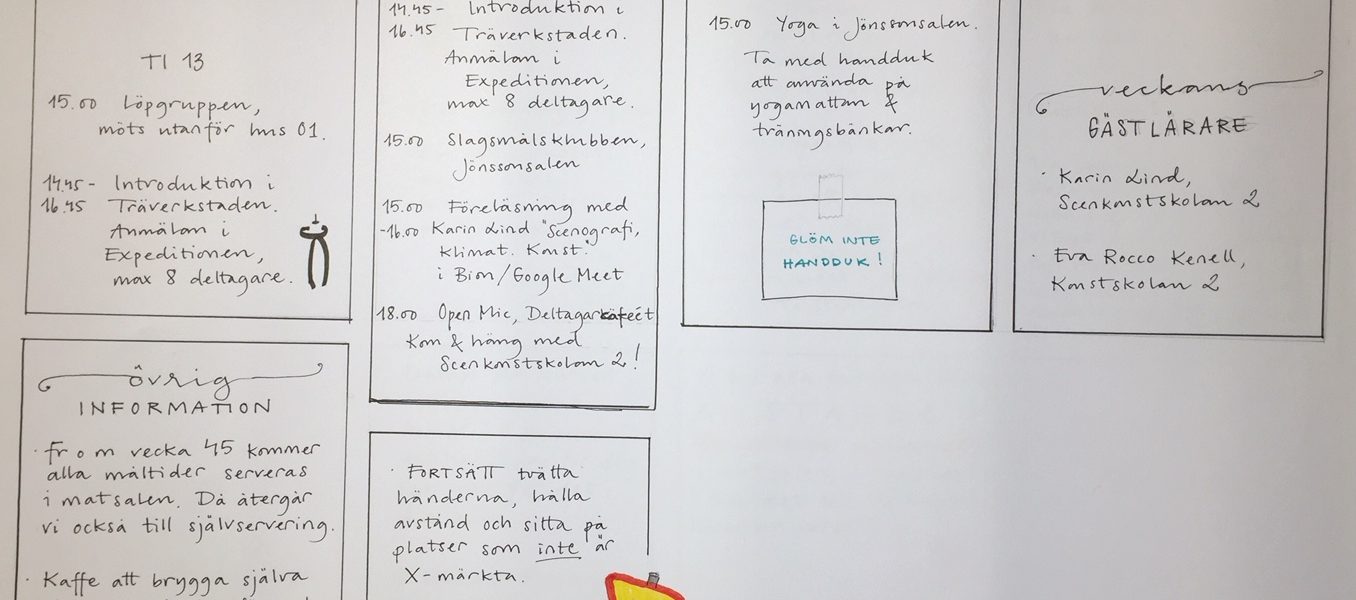 TI 13
15.00 Löpgruppen,
möts utanför hus 01.
14.45 - Introduktion i
16.45 Träverkstaden.
Anmälan i
Expeditionen,
max 8 deltagare.
14.45 - Introduktion i
16.45 Träverkstaden.
Anmälan i
Expeditionen,
max 8 deltagare.
15.00 Slagsmålsklubben,
Jönssonsalen
15.00 Föreläsning med
-16.00 Karin Lind "Scenografi,
klimat. Konst."
i Bion/Google Meet
18.00 Open Mic, Deltagarcaféet
Kom & häng med
Scenkonstskolan 2!
15.00 Yoga i Jönssonsalen.
Ta med handduk
att använda på
yogamattan &
träningsbänkar.
GLÖM INTE
HANDDUK!
veckans
GÄSTLÄRARE
· Karin Lind,
Scenkonstskolan 2
· Eva Rocco Kenell,
Konstskolan 2
övrig
INFORMATION
· fr o m vecka 45 kommer
alla måltider serveras
i matsalen. Då återgår
vi också till självservering.
· Kaffe att brygga själva
· FORTSÄTT tvätta
händerna, hålla
avstånd och sitta på
platser som inte är
X-märkta.